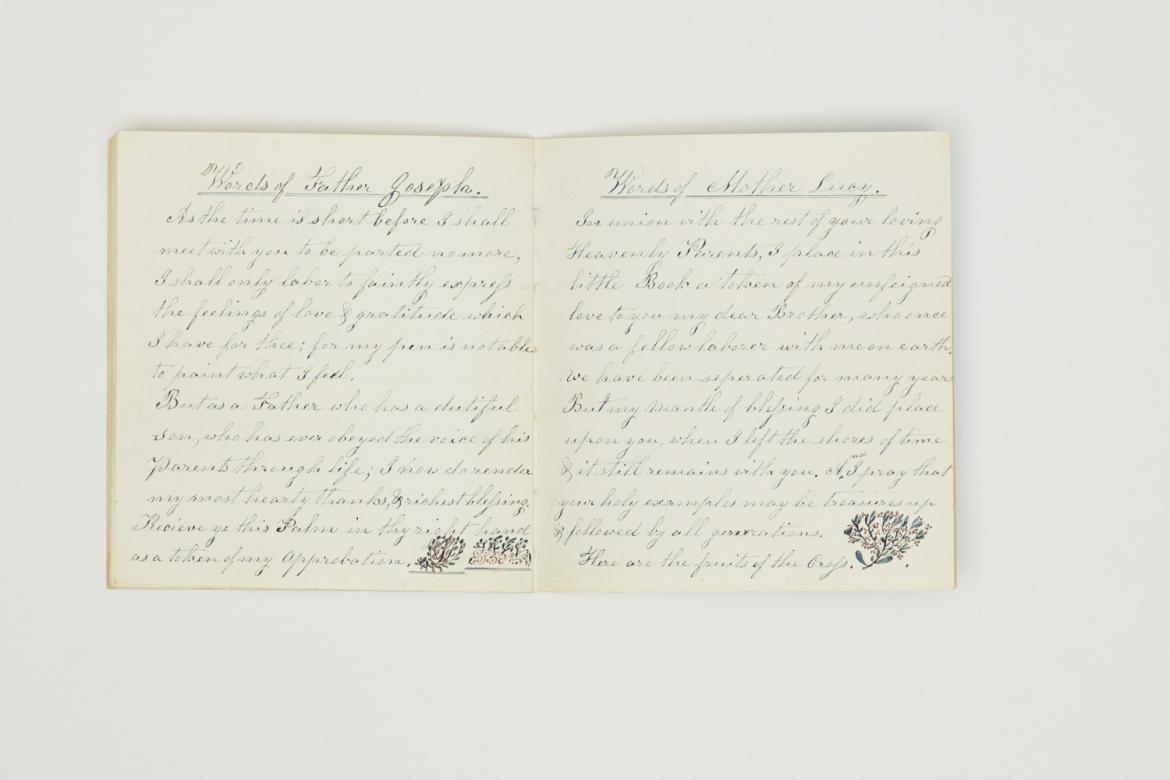 Words of Father Joseph.
As the time is short before I shall
meet with you to be parted no more,
I shall only labor to faintly express
the feelings of love & gratitude which
I have for thee; for my pen is not able
to paint what I feel.
But as a Father who has a dutiful
son, who has ever obeyed the voice of his
Parents through life; I now do render
my most hearty thanks, & richest blessing.
Recieve ye this Palm in thy right hand
as a token of my Approbation.
Words of Mother Lucy.
In union with the rest of your loving
Heavenly Parents, I place in this
little Book a token of my unfeigned
love to you my dear Brother, who once
was a fellow laborer with me on earth.
We have been seperated for many year
But my mantle of blessing I did place
upon you, when I left the shores of time
& it still remains with you. And I pray that
your holy examples may be treasures up
& followed by all generations.
Here are the fruits of the Cross.